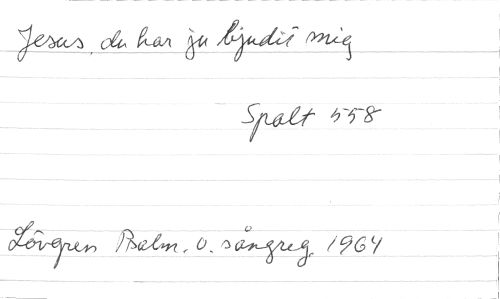 Jesus, du har ju bjudit mig
Spalt 558
Lövgren Psalm. o. sångreg. 1964